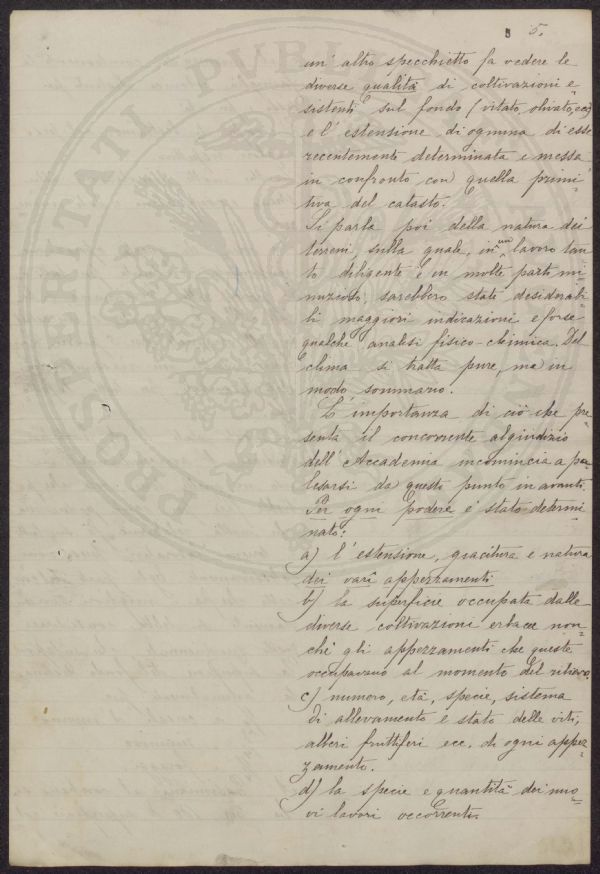 5.
un' altro specchietto fa vedere le
diverse qualità di coltivazioni e=
sistenti sul fondo (vitato, olivato, ecc)
e l'estensione di ognuna di esse
recentemente determinata e messa
in confronto con quella primi=
tiva del catasto.
Si parla poi della natura dei
terreni, sulla quale, in un lavoro tan
to diligente e in molte parti mi=
nuzioso, sarebbero state desiderabi=
li maggiori indicazioni e forse
qualche analisi fisico-chimica. Del
clima si tratta pure, ma in
modo sommario.
L'importanza di ciò che pre
senta il concorrente al giudizio
dell'Accademia incomincia a pa
lesarsi da questo punto in avanti.
Per ogni podere è stato determi
nato:
a) l'estensione, giacitura e natura
dei vari appezzamenti
b) la superficie occupata dalle
diverse coltivazioni erbacee non=
chè gli appezzamenti che queste
occupavano al momento del rilievo.
c) numero, età, specie, sistema
di allevamento e stato delle viti,
alberi fruttiferi ecc. di ogni appez=
zamento.
d) la specie e quantità dei nuo=
vi lavori occorrenti.
PROSPERITATI PVBL